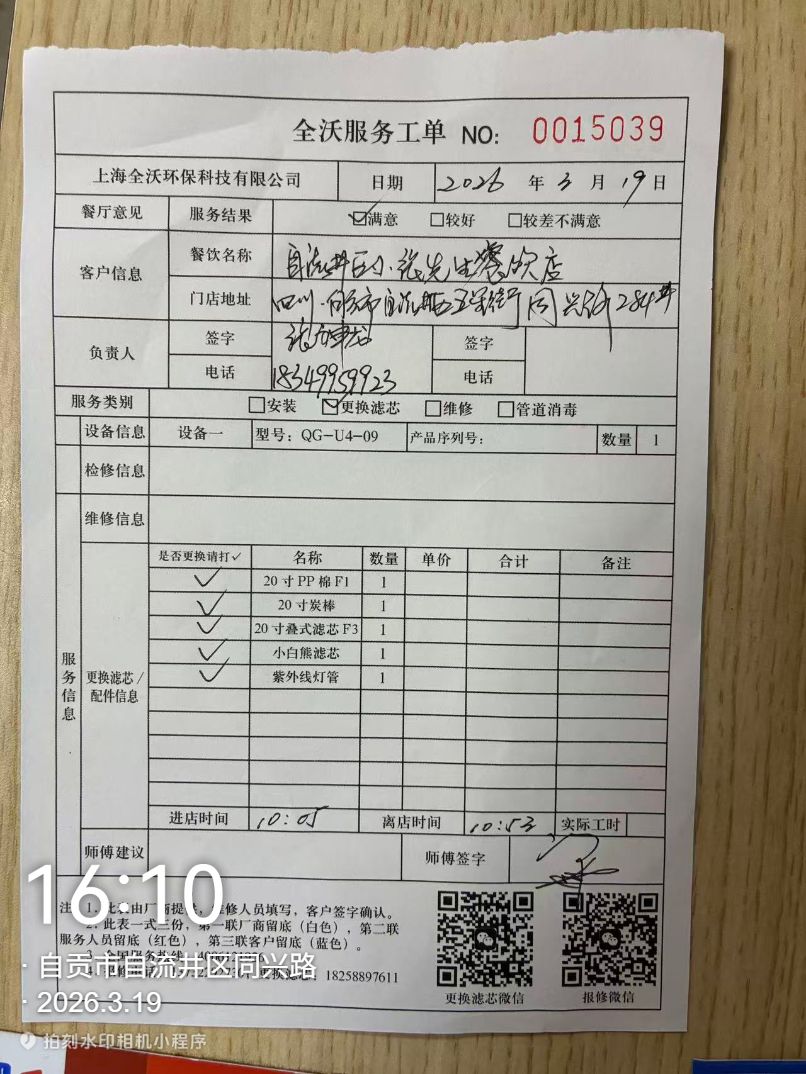 全沃服务工单 NO: 0015039
上海全沃环保科技有限公司 日期 2026 年 3 月 19 日
餐厅意见 服务结果 ☑满意 □较好 □较差不满意
客户信息 餐饮名称 自流井区小张先生餐饮店
门店地址 四川·自贡市自流井区五星街 同兴路284#
负责人 签字 签字
电话 18349959923 电话
服务类别 □安装 ☑更换滤芯 □维修 □管道消毒
设备信息 设备一 型号：QG-U4-09 产品序列号： 数量 1
检修信息
维修信息
服务信息
更换滤芯/配件信息
是否更换请打✓ 名称 数量 单价 合计 备注
✓ 20寸PP棉F1 1
✓ 20寸炭棒 1
✓ 20寸叠式滤芯F3 1
✓ 小白熊滤芯 1
✓ 紫外线灯管 1
进店时间 10:05 离店时间 10:53 实际工时
师傅建议 师傅签字
注：1、此表由厂商提供，维修人员填写，客户签字确认。
2、此表一式三份，第一联厂商留底（白色），第二联
服务人员留底（红色），第三联客户留底（蓝色）。
3、全国服务热线
更换滤芯：18258897611
更换滤芯微信 报修微信
16:10
· 自贡市自流井区同兴路
· 2026.3.19
拍刻水印相机小程序